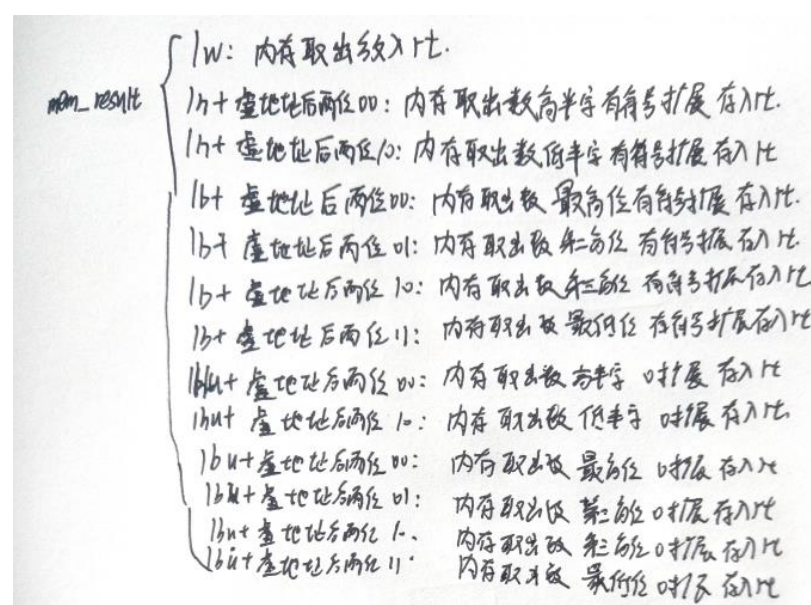 mem_result
lw: 内存取出放入rt.
lh+虚地址后两位00: 内存取出数高半字有符号扩展存入rt.
lh+虚地址后两位10: 内存取出数低半字有符号扩展存入rt
lb+虚地址后两位00: 内存取出数最高位有符号扩展存入rt.
lb+虚地址后两位01: 内存取出数第二高位有符号扩展存入rt.
lb+虚地址后两位10: 内存取出数第三高位有符号扩展存入rt
lb+虚地址后两位11: 内存取出数最低位有符号扩展存入rt
lhu+虚地址后两位00: 内存取出数高半字0扩展存入rt
lhu+虚地址后两位10: 内存取出数低半字0扩展存入rt.
lbu+虚地址后两位00: 内存取出数最高位0扩展存入rt
lbu+虚地址后两位01: 内存取出数第二高位0扩展存入rt
lbu+虚地址后两位10. 内存取出数第三高位0扩展存入rt
lbu+虚地址后两位11: 内存取出数最低位0扩展存入rt